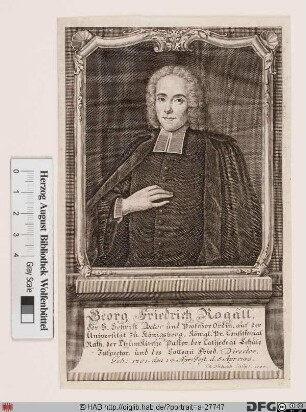 Georg Friedrich Rogall.
Der H. Schrift Doctor und Professor Ordin. auf der
Universität zu Königsberg, Königl. Pr. Consistorial
Rath, der Thumkirche Pastor, der Cathedral Schule
Inspector, und des Collegii Frid. Director.
Herzog August Bibliothek Wolfenbüttel
Gray Scale
© HAB http://diglib.hab.de?portrait=a-17747
DFG